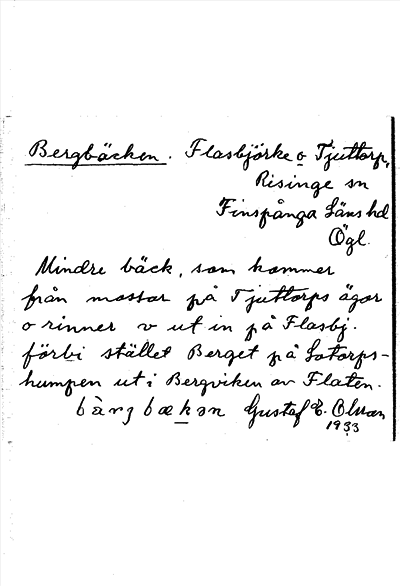 Bergbäcken. Flasbjörke o Tjuttorp,
Risinge sn
Finspånga Läns hd
Ögl.
Mindre bäck, som kommer
från mossar på Tjuttorps ägor
o rinner v ut in på Flasbj.
förbi stället Berget på Lotorps-
humpen ut i Bergviken av Flaten.
bàrȝbækən Gustaf E. Olsson
1933